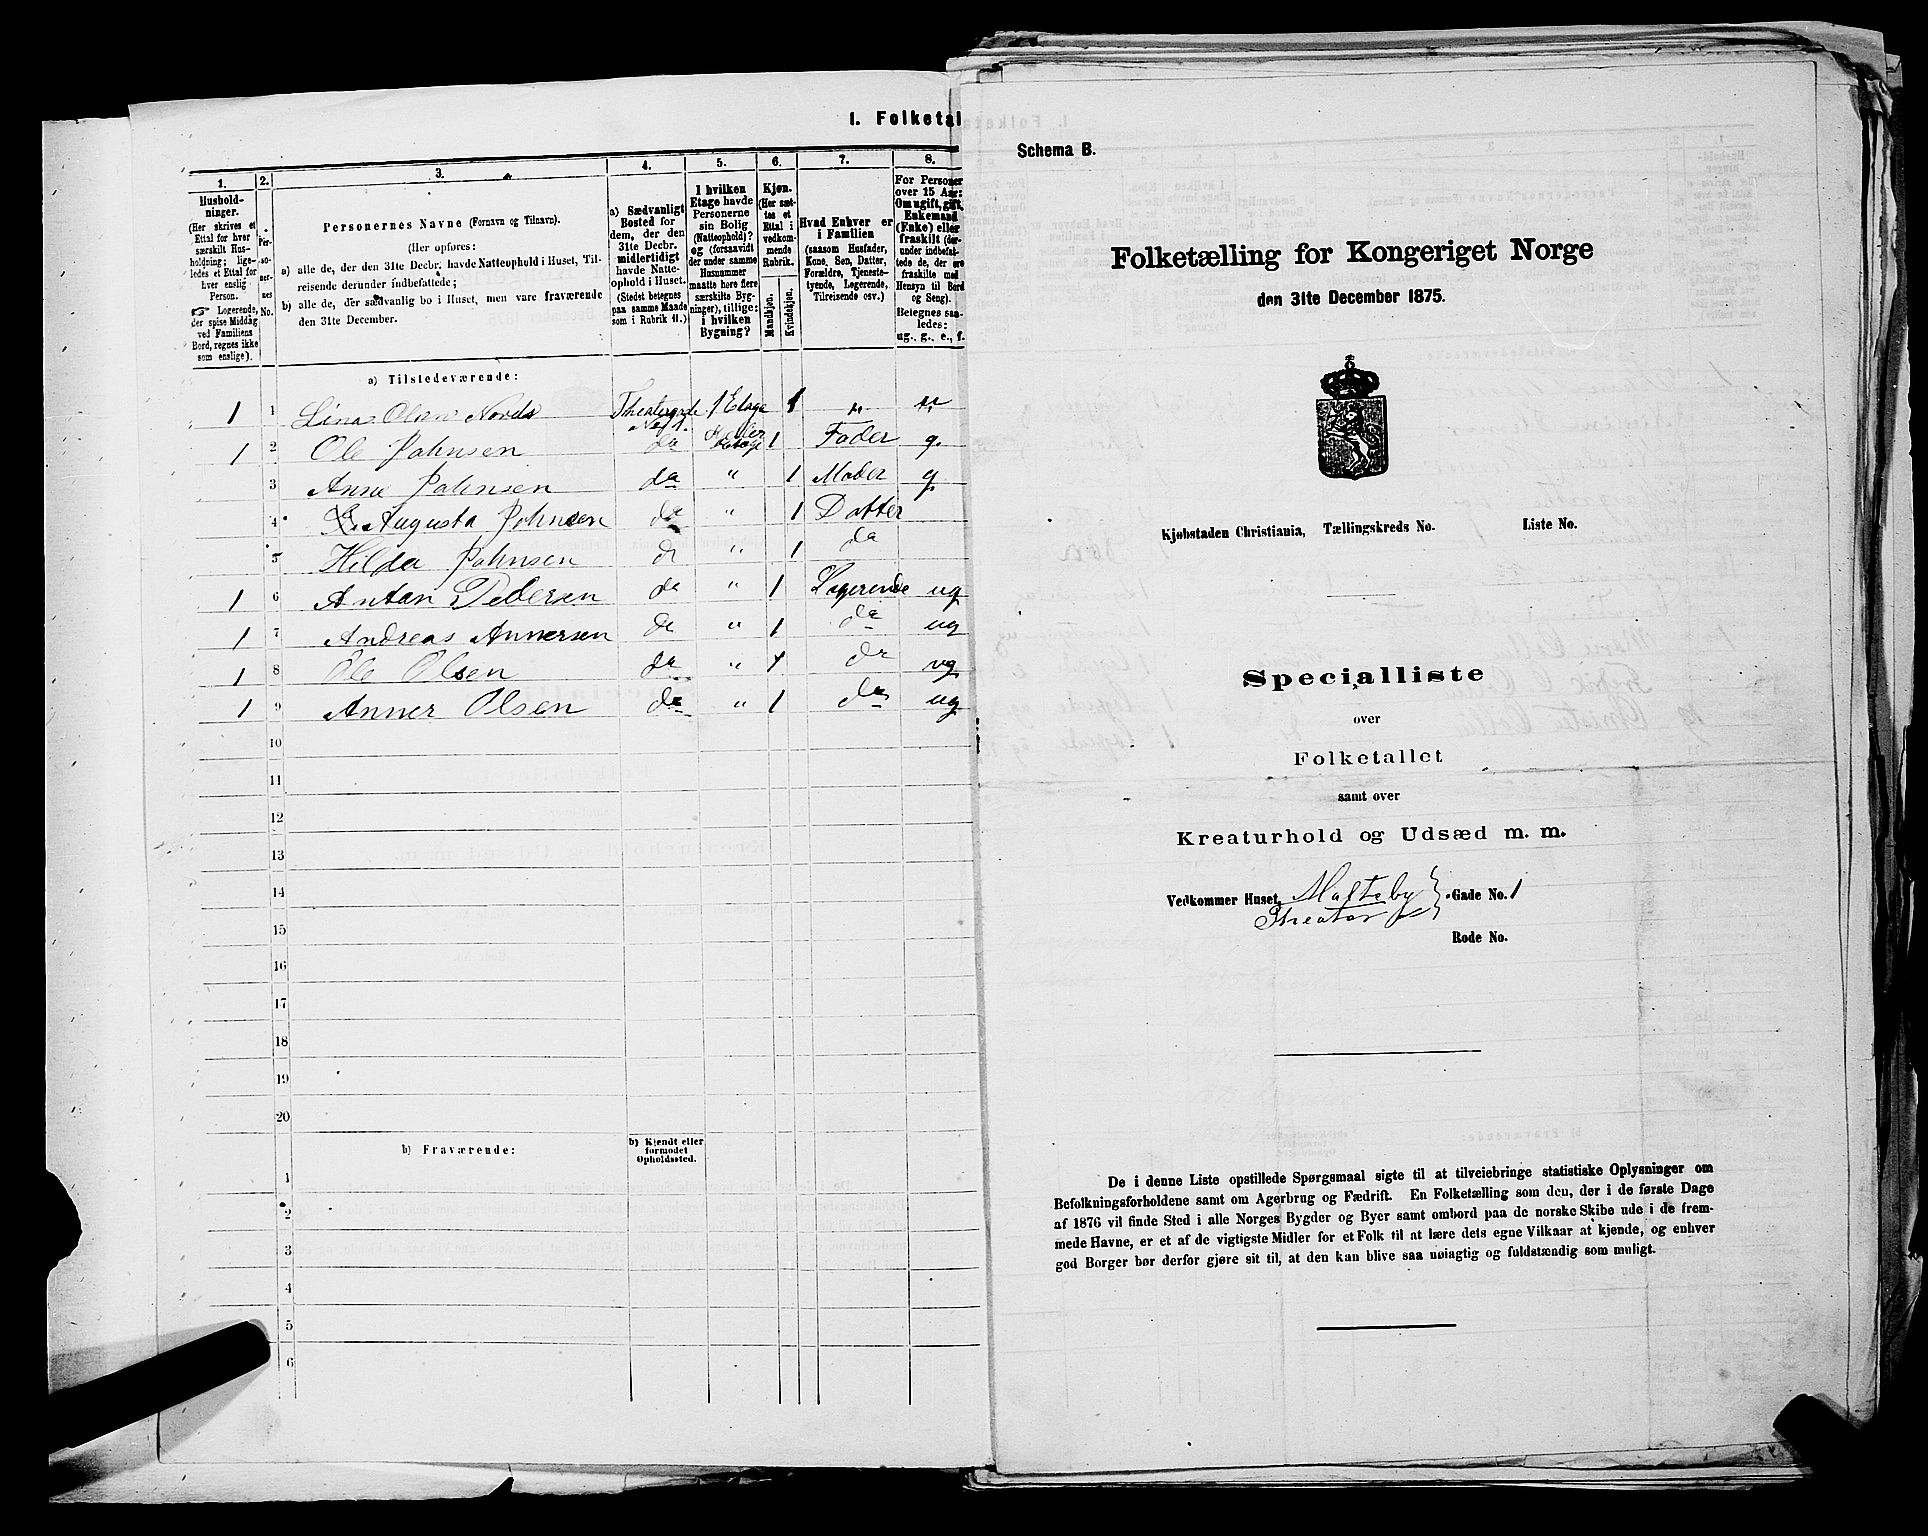 I. Folketal
1.
Hushold-
ninger.
(Her skrives et
Ettal for hver
særskilt Hus-
holdning; lige-
ledes et Ettal for
hver enslig
Person.
☞ Logerende,
der spise Middag
ved Familiens
Bord, regnes ikke
som enslige).
2.
Per-
so-
ner-
nes
No.
3.
Personernes Navne (Fornavn og Tilnavn).
(Her opføres:
a) alle de, der den 31te Decbr. havde Natteophold i Huset, Til-
reisende derunder indbefattede;
b) alle de, der sædvanlig bo i Huset, men vare fraværende
den 31te December.
4.
a) Sædvanligt
Bosted for
dem, der den
31te Decbr.
midlertidigt
havde Natte-
ophold i Huset.
(Stedet betegnes
paa samme Maade
som i Rubrik 11.)
5.
I hvilken
Etage havde
Personerne
sin Bolig
(Natteophold)?
og (forsaavidt
der under samme
Husnummer
maatte høre flere
særskilte Byg-
ninger), tillige:
i hvilken
Bygning?
6.
Kjøn.
(Her sæt-
tes et
Ettal i
vedkom-
mende
Rubrik.
Mandkjøn.
Kvindekjøn.
7.
Hvad Enhver er
i Familien
(saasom Husfader,
Kone, Søn, Datter,
Forældre, Tjeneste-
tyende, Logerende,
Tilreisende osv.)
8.
For Personer
over 15 Aar:
Om ugift, gift,
Enkemand
(Enke) eller
fraskilt (der-
under indbefat-
tede de, der ere
fraskilte med
Hensyn til Bord
og Seng).
Betegnes saa-
ledes:
ug., g., e., f.
a) Tilstedeværende:
1 1 Lina Olsen 1 Etage 1 " "
1 2 Ole Johnsen da 1 Fader g.
3 Anne Johnsen da " 1 Moder g.
4 Augusta Johnsen da " 1 Datter
5 Hilda Johnsen da " 1 da
1 6 Anton Pedersen da " 1 Logerende ug
1 7 Andreas Annersen da " 1 da ug
1 8 Ole Olsen da " 1 da ug
1 9 Anner Olsen da " 1 da ug
10
11
12
13
14
15
16
17
18
19
20
b) Fraværende:
b) Kjendt eller
formodet
Opholdssted.
1
2
3
4
5
6
Schema B.
Folketælling for Kongeriget Norge
den 31te December 1875.
Kjøbstaden Christiania, Tællingskreds No. Liste No.
Specialliste
over
Folketallet
samt over
Kreaturhold og Udsæd m. m.
Vedkommer Huset, Malteby Gade No. 1
Theater
Rode No.
De i denne Liste opstillede Spørgsmaal sigte til at tilveiebringe statistiske Oplysninger om
Befolkningsforholdene samt om Agerbrug og Fædrift. En Folketælling som den, der i de første Dage
af 1876 vil finde Sted i alle Norges Bygder og Byer samt ombord paa de norske Skibe ude i de frem-
mede Havne, er et af de vigtigste Midler for et Folk til at lære dets egne Vilkaar at kjende, og enhver
god Borger bør derfor gjøre sit til, at den kan blive saa nøiagtig og fuldstændig som muligt.